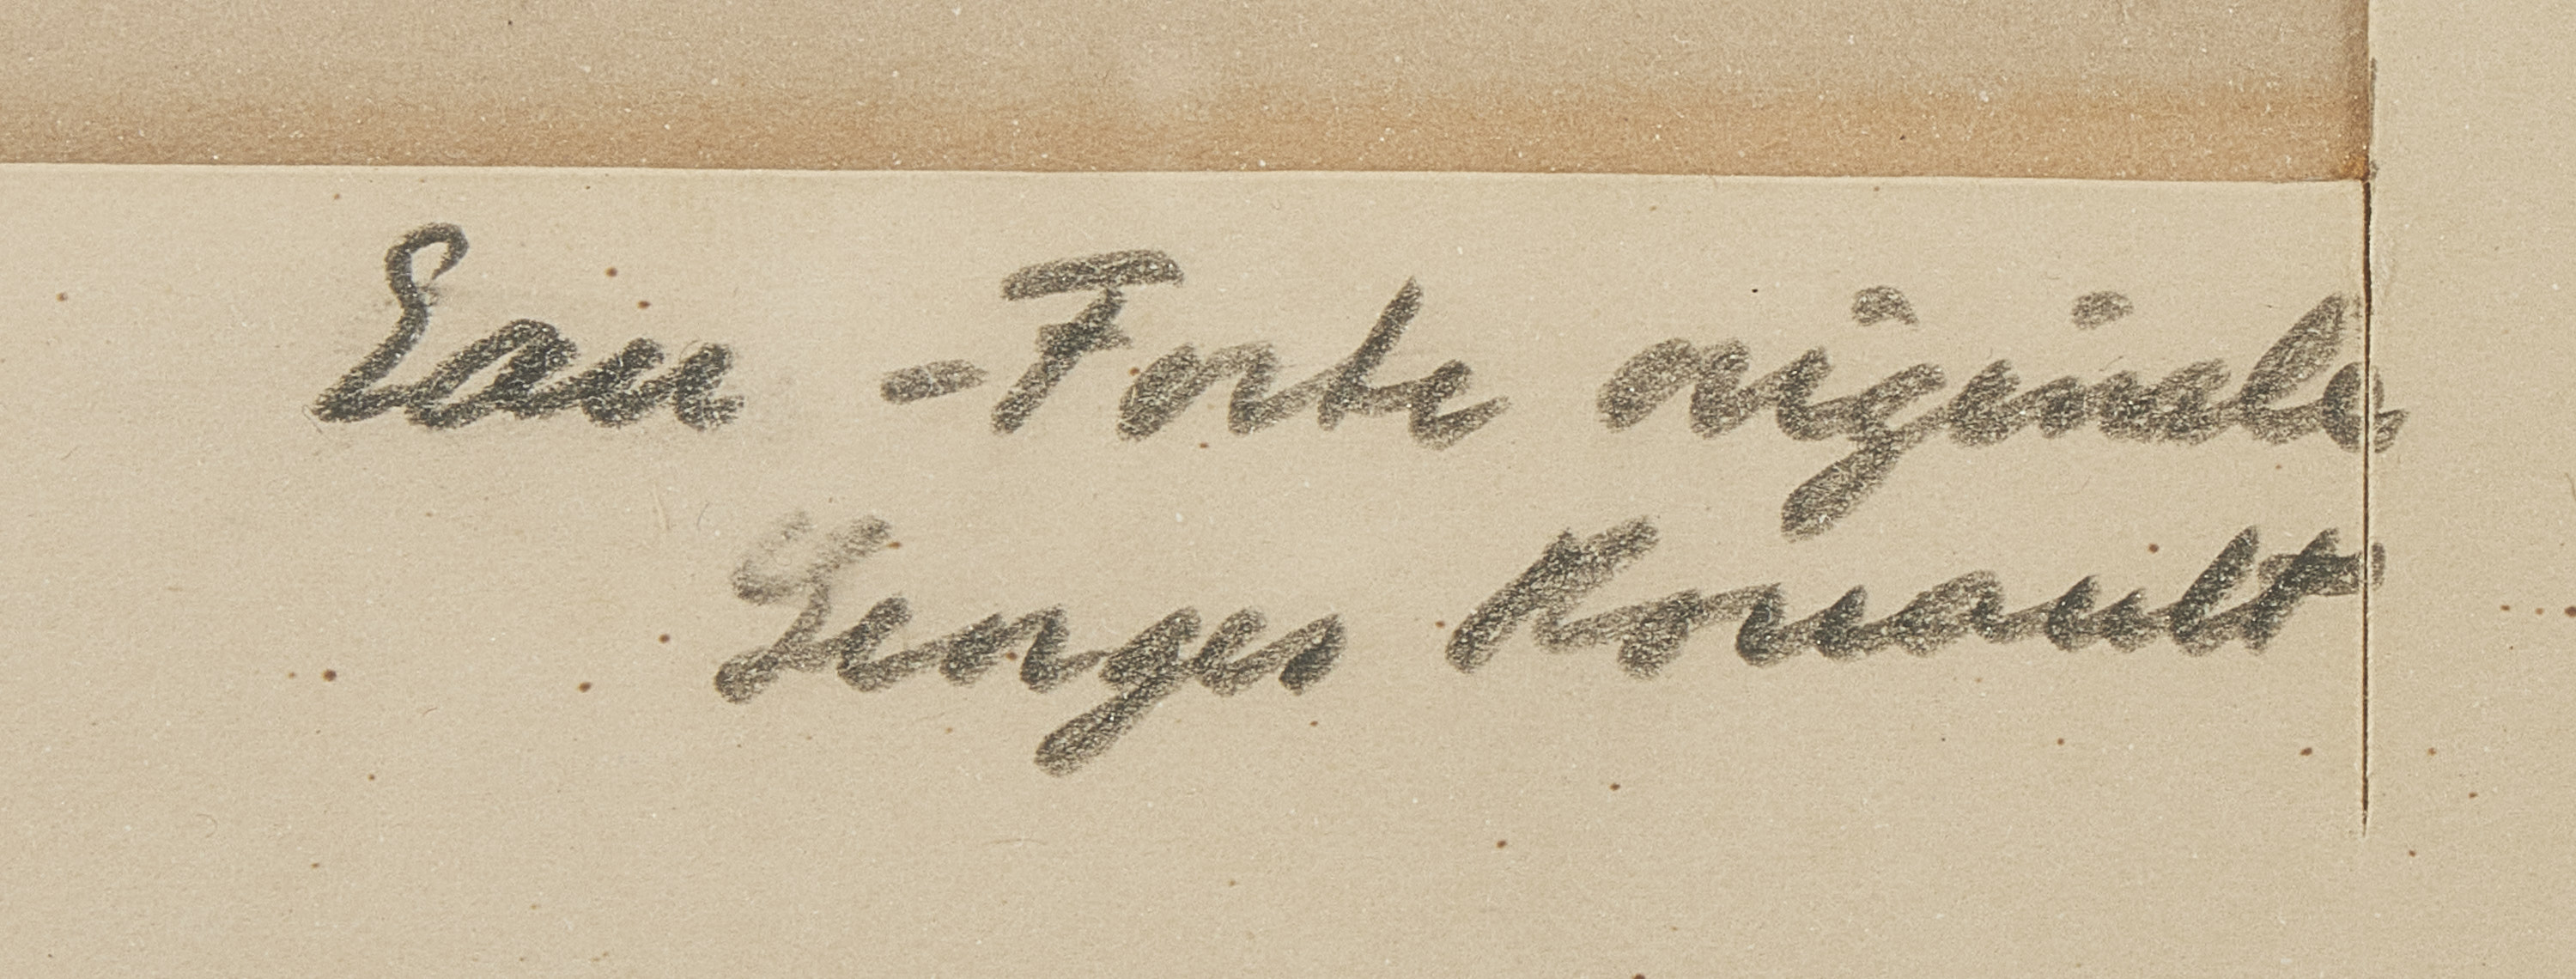 Eau - Forte originale
Georges Rouault